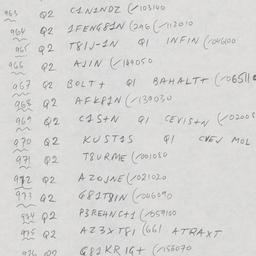 963 Q2 C1N1NDZ (✓103140
964 Q2 1FENG81N (2A6 (✓112010
965 Q2 T81J-1N Q1 INFIN (✓046100
966 Q2 AJIN (✓149050
967 Q2 BOLT+ Q1 BAHALT+ (✓06511
968 Q2 AFK81N (✓139030
969 Q2 C1S+N Q1 CEVIS+N (✓0200
970 Q2 KUST1S Q1 CVEN MOL
971 Q2 T8URME (✓001050
972 Q2 AZOJNE (✓021020
973 Q2 G81T8IN (✓006090
974 Q2 P3RE4NC+1 (✓059100
975 Q2 AZ3XTP1 (661 ATRAXT
Q2 G81KRIG+ (✓156070